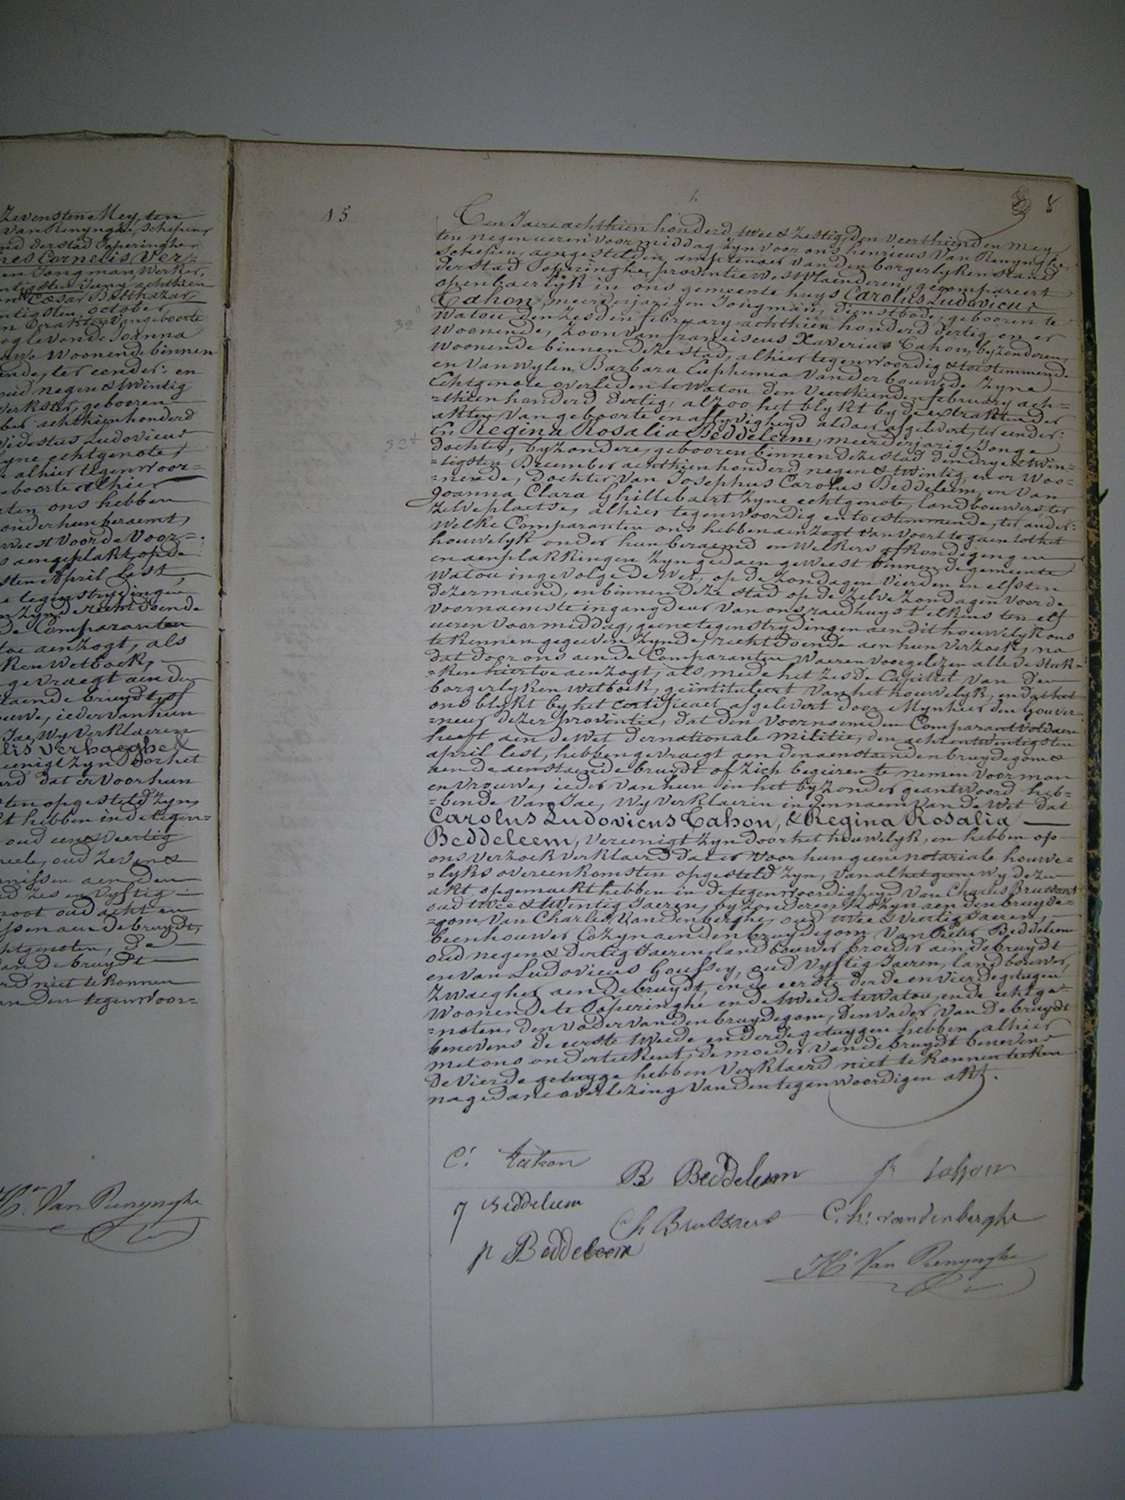 Zevensten Mey, ten
Van Renynghe, Schepen
and der stad Poperinghe
nes Cornelis Ver-
en Jongman, Werker,
tigsten Juny achthien
Cæsar Balthazar
ntigsten october
en Extrakten geboorte
og levende Joanna
uwe Woonende binnen
ende, ter eender: en
oud negen & twintig
Werkster, geboren
ber achthienhonderd
Modestus Ludovicus
zyne echtgenote,
alhier tegenwoor=
geboorte alhier
ten ons hebben
onder hun beraemt,
weest voor de Voor=
s aengeplakt op de
sten April lest,
e tegenstrydingen
n zynde rechtdoende
de Comparanten
toe aenzogt, als
ken Wetboek,
gevraegt aen den
taende bruydt of
ouwe, ieder van hun
Jae, Wy Verklaeren
lis Verhaeghe &
eenigt zyn door het
rd dat er voor hun
ten opgesteld zyn,
t hebben in de tegen-
oud een & Veertig
neele, oud Zeven &
nissen aen den
d Zes en Vyftig
root oud acht en
ssen aen de bruydt,
htgenoten, de
an de bruydt
rd niet te konnen
an den tegenwoor=
H. Van Renynghe
15
8
Den Jaere achthien honderd twee & Zestig, den Veerthienden Mey
ten negen ueren Voormiddag, zyn voor ons Henricus Van Renynghe,
Schepen, aengestelden amptenaer van den borgerlyken stand
der stad Poperinghe, provintie West Vlaenderen, gecompareert
openbaerlyk in ons gemeente huys Carolus Ludovicus
Cahon, meerderjarigen Jongman, dienstbode, geboren te
Watou den Zesden february achthien honderd dertig, en er
Woonende, Zoon van franciscus Xaverius Cahon, byzonderen,
Woonende binnen deze stad, alhier tegenwoordig & toestemmende
en Van Wylen Barbara Euphemia Vanderbouwede Zyne
Echtgenote overleden te Watou den Veerthienden february ach=
=thien honderd dertig, alzoo het blykt by de extrakten der
akten Van geboorte en aflyvigheyd aldaer afgelevert, ter eender:
En Regina Rosalia Beddeleem, meerderjarige Jonge
dochter, byzondere, geboren binnen deze stad den drye & twin=
=tigsten December achthien honderd negen & twintig en er Woo=
=nende, dochter Van Josephus Carolus Beddeleem, en Van
Joanna Clara Ghillebaert Zyne echtgenote, landbouwers ter
Zelve plaetse, alhier tegenwoordig en toestemmende, ter ander:
Welke Comparanten ons hebben aenzogt Van Voort te gaen tot het
houwelyk onder hun beraemd en Welkers afkondigingen
en aenplakkingen Zyn gedaen geweest binnen de gemeente
Watou ingevolge de Wet, op de Zondagen Vierden en elfsten
dezer maend, en binnen deze stad op de Zelve Zondagen voor de
Voornaemste ingangdeur Van ons raedhuys telkens ten elf
ueren Voormiddag, geene tegenstrydingen aen dit houwelyk ons
te kennen gegeven zynde, rechtdoende aen hun Verzoek, na
dat door ons aen de Comparanten Waeren Voorgelezen alle de stuk=
=ken hiertoe aenzogt, als mede het Zesde Capittel Van den
borgerlyken wetboek, geïntituleert Van het houwelyk, en dat het
ons blykt by het Certificaet afgelevert door Mynheer den Gouver-
=neur dezer provintie, dat den Voornoemden Comparant Voldaen
heeft aen de Wet der nationale militie, den achtentwintigsten
april lest, hebben gevraegt aen den aenstaenden bruydegom &
aen de aenstaende bruydt of Zich begeiren te nemen Voor man
en Vrouwe, ieder Van hun in het byzonder geantwoord heb=
=bende Van Jae, Wy Verklaeren in den naem Van de Wet dat
Carolus Ludovicus Cahon, & Regina Rosalia
Beddeleem, Vereenigt Zyn door het houwelyk, en hebben op
ons Verzoek Verklaerd dat er voor hun geene notariale houwe=
=lyks overeenkomsten opgesteld Zyn, Van al het gene Wy dezen
akt opgemaekt hebben in de tegenwoordigheyd Van Charles Brutsaert
oud twee & twintig Jaeren, byzonderen, Kozyn aen den bruyde=
=gom, Van Charles Vandenberghe, oud twee & Veertig Jaeren,
beenhouwer Cozyn aen den bruydegom, Van Pieter Beddeleem
oud negen & dertig Jaeren landbouwer broeder aen de bruydt
en Van Ludovicus Goussey, oud Vyftig Jaeren, landbouwer,
Zwaegher aen de bruydt, en de eerste derde en Vierde getuygen
Woonende te Poperinghe en de tweede te Watou, en de echtge=
=noten, den Vader Van den bruydegom, den Vader Van de bruydt
benevens de eerste tweede en derde getuygen hebben alhier
met ons onderteekent, de moeder Van de bruydt benevens
de Vierde getuyge hebben Verklaerd niet te konnen teeken
na gedane overlezing Van den tegenwoordigen akt.
32
32
C. Cahon
R Beddeleem
f. Cahon
J Beddeleem
Ch Brutsaert
C. h. vandenberghe
p Beddeleem
H. Van Renynghe